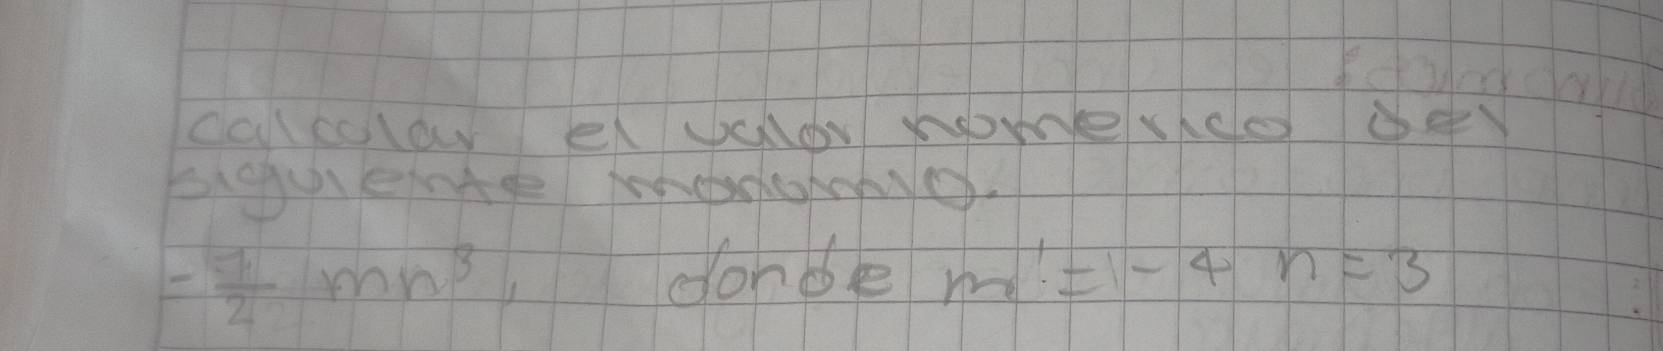 calcular el valor nomerico del
siguiente monomio.
-\frac{1}{2} mn³, donde m = -4 n = 3